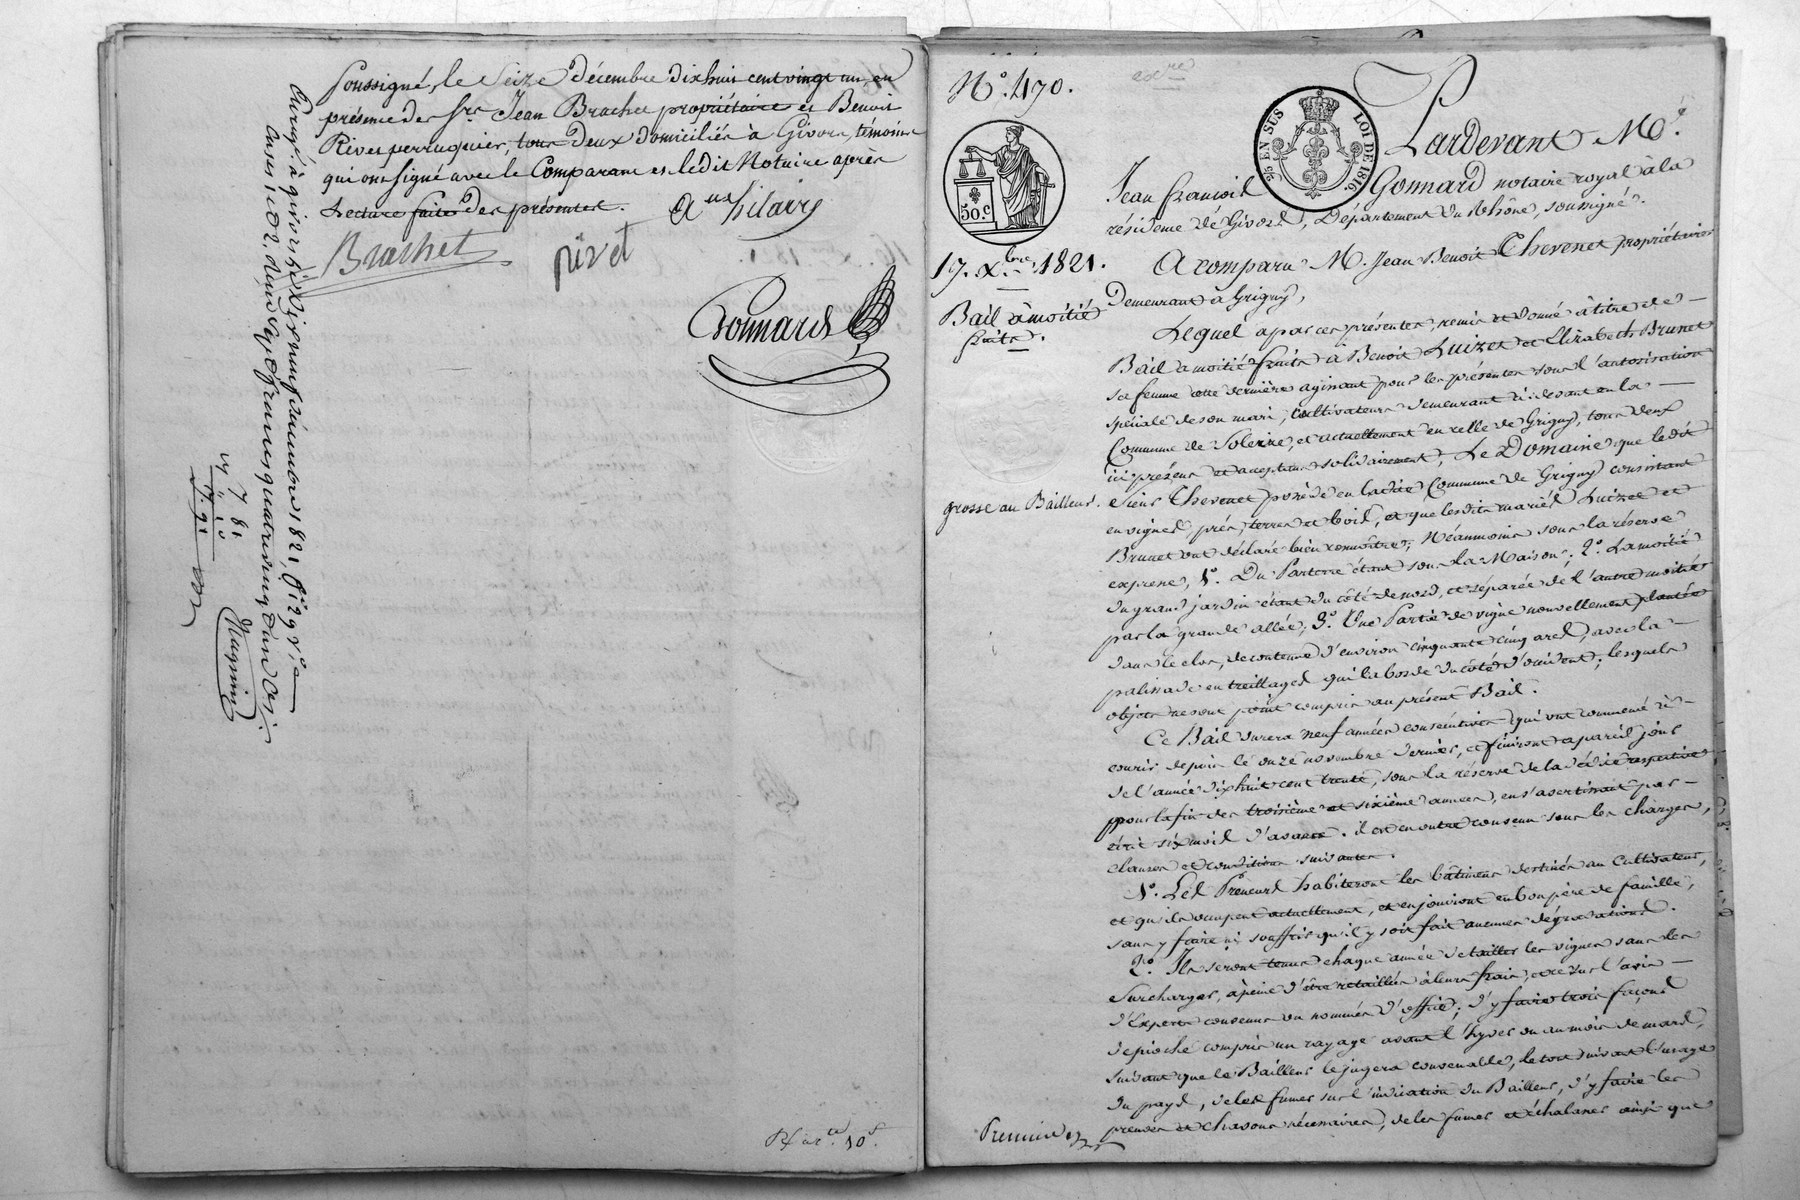 soussigné, le Seize Décembre dixhuit cent vingt un, en
présence des Srs Jean Brachet propriétaire et Benoit
Rivet perruquier, tous Deux domiciliés à Givors, témoins
qui ont signé avec le Comparant et ledit Notaire après
Lecture faite Des présentes.
hilaire
Brachet
rivet
Gonnard
Enrgé. à givors le dixneuf décembre 1821, fo 29 Vo
cases 1 et 2, deux francs quatre vingt un
Magnin
No. 470.
50.c
25 EN SUS
LOI DE 1816.
17. Xbre 1821.
Bail à moitié
fruits.
grosse au Bailleur.
Pardevant Me.
Jean françois Gonnard notaire royal à la
résidence de Givors, Département du Rhône, soussigné.
A comparu M. Jean Benoit Chevenet propriétaire
Demeurant à Grigny,
Lequel a par ces présentes, remis et donné à titre de
Bail à moitié fruits à Benoit Luizet et Elizabeth Brunet
sa femme cette dernière agissant pour les présentes sous l'autorisation
spéciale de son mari, cultivateurs demeurant ci-devant en la
Commune de Solerre, et actuellement en celle de Grigny, tous deux
ici présens et acceptans solidairement, Le Domaine que ledit
sieur Chevenet possède en ladite Commune de Grigny consistant
en vignes, prés, terres et bois, et que lesdits mariés Luizet et
Brunet ont déclaré bien connoître; Néanmoins sous la réserve
expresse, 1o. Du Parterre étant sous la Maison; 2o. La moitié
du grand jardin étant du côté de nord, et séparée de l'autre moitié
par la grande allée; 3o. Une Partie de vigne nouvellement plantée
dans le clos, de contenue d'environ cinquante cinq ares, avec la
palissade en treillages qui la borde du côté d'occident; lesquels
objets ne sont point compris au présent Bail.
Ce Bail durera neuf années consécutives qui ont commencé à
courir depuis le onze novembre dernier, et finiront à pareil jour
de l'année dixhuit cent trente, sous la réserve de la dédie respective
pour la fin des troisième et sixième années, en s'avertissant par
écrit six mois d'avance. il est en outre convenu sous les charges,
clauses et conditions suivantes.
1o. Les Preneurs habiteront les bâtimens destinés au Cultivateur,
et qu'ils occupent actuellement, et en jouiront en bon père de famille,
sans y faire ni souffrir qu'il y soit fait aucunes dégradations.
2o. Ils seront tenus chaque année de tailler les vignes sans les
surcharger, à peine d'être retaillées à leurs frais, et ce sur l'avis
d'Experts convenus ou nommés d'office; d'y faire trois façons
de pioche compris un rayage avant l'hyver ou au mois de mars,
suivant que le Bailleur le jugera convenable, le tout suivant l'usage
du pays, de les fumer sur l'indication du Bailleur, d'y faire les
preuves et chavons nécessaires, de les fumer et échalasser ainsi que